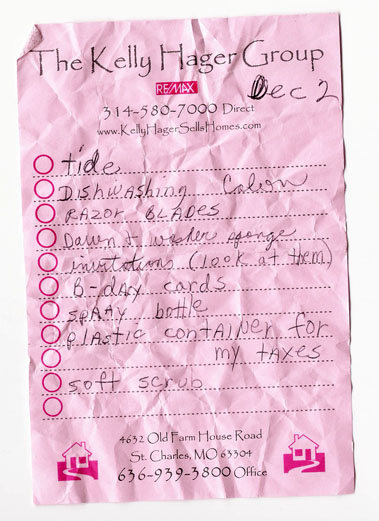 The Kelly Hager Group
RE/MAX
Dec 2
314-580-7000 Direct
www.KellyHagerSellsHomes.com
tide
Dishwashing
RAZOR BLADES
Dawn + washer sponge
invitations (look at them)
B-day cards
spray bottle
plastic container for
my taxes
soft scrub
4632 Old Farm House Road
St. Charles, MO 63304
636-939-3800 Office